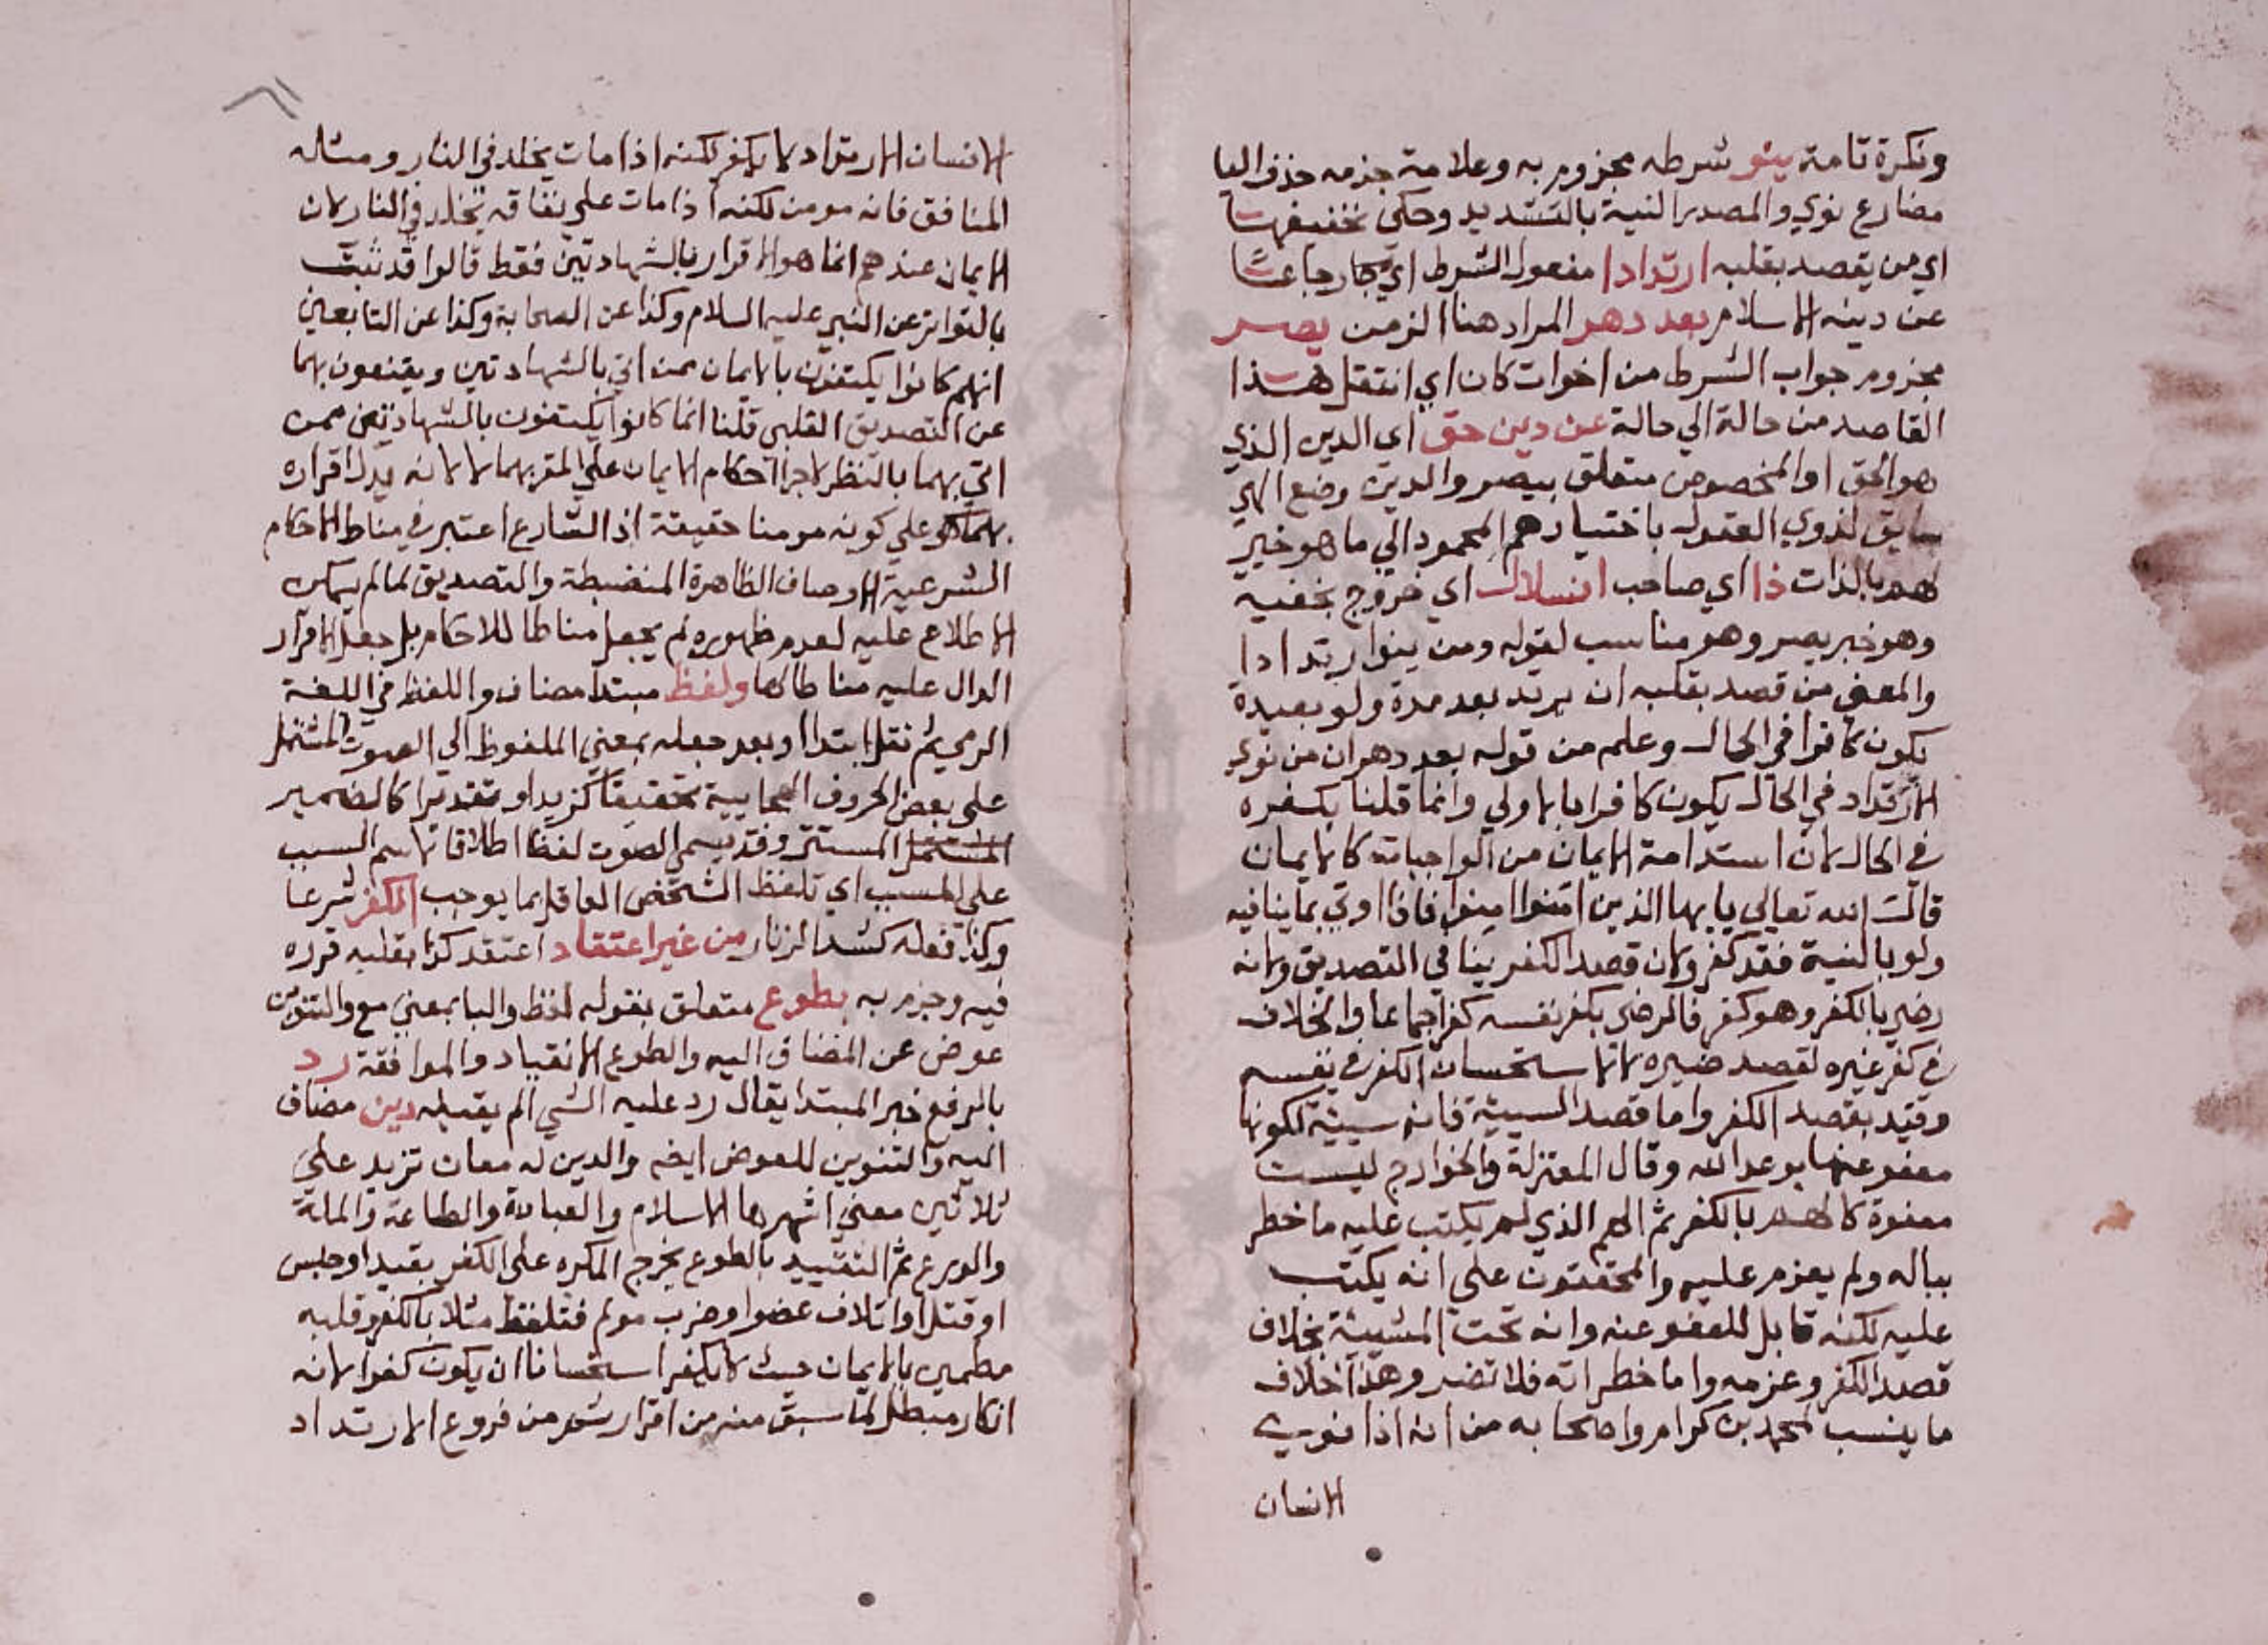 ونكرة تامة ينو شرطه مجزوم به وعلامة جزمه حذف اليا
مضارع نوي والمصدر النية بالتشديد وحكي تخفيفها
اي من يقصد بقلبه ارتدادا مفعول الشرط اي
عن دينه الاسلام بعد دهر المراد هنا الزمن يصر
مجزوم جواب الشرط من اخوات كان اي انتقل هذا
القاصد من حالة الي حالة عن دين حق اي الدين الذي
هو الحق او المخصوص متعلق بيصر والدين وضع الهي
سايق لذوي العقول باختيارهم المحمود الي ما هو خير
لهم بالذات ذا اي صاحب انسلال اي خروج بخفية
وهو خبر يصر وهو مناسب لقوله ومن ينو ارتدادا
والمعني من قصد بقلبه ان يرتد بعد مدة ولو بعيدة
يكون كافرا في الحال وعلم من قوله بعد دهر ان من نوي
الارتداد في الحال يكون كافرا بالاولي وانما قلنا بكفره
في الحال لان استدامة الايمان من الواجبات كالايمان
قال الله تعالي يا يها الذين امنوا امنوا فاذا اوتي بما ينافيه
ولو بالنية فقد كفر ولان قصد الكفر ينافي التصديق ولانه
رضي بالكفر وهو كفر فالرضي بكفر نفسه كفر اجماعا والخلاف
في كفر غيره لقصد ضيره لا لاستحسان الكفر في نفسه
وقيد بقصد الكفر واما قصد السيئة فانه سيئة لكونها
معفو عنها بوعد الله وقال المعتزلة والخوارج ليست
معفوة كالهم بالكفر ثم الهم الذي لم يكتب عليه ما خطر
بباله ولم يعزم عليه والمحققون علي انه يكتب
عليه لكنه قابل للعفو عنه وانه تحت المشيئة بخلاف
قصد الكفر وعزمه واما خطراته فلا تضر وهذا خلاف
ما ينسب لمحمد بن كرام واصحابه من انه اذا نوي
الانسان
الانسان الارتداد لا يكفر لكنه اذا مات يخلد في النار ومثاله
المنافق فانه مومن لكنه اذا مات علي نفاقه يخلد في النار لان
الايمان عندهم انما هو الاقرار بالشهادتين فقط قالوا قد ثبت
بالتواتر عن النبي عليه السلام وكذا عن الصحابة وكذا عن التابعين
انهم كانوا يكتفون بالايمان ممن اتي بالشهادتين ويقنعون بهما
عن التصديق القلبي قلنا انما كانوا يكتفون بالشهادتين ممن
اتي بهما بالنظر لاجرا احكام الايمان علي المقر بهما لا لانه يدل اقراره
بهما علي كونه مومنا حقيقة اذ الشارع اعتبر في مناط الاحكام
الشرعية الاوصاف الظاهرة المنضبطة والتصديق لما لم يمكن
الاطلاع عليه لعدم ظهوره لم يجعل مناطا للاحكام بل جعل الاقرار
الدال عليه مناطا لها ولفظ مبتدا مضاف واللفظ في اللغة
الرمي ثم نقل ابتدا او بعد جعله بمعني الملفوظ الي الصوت المشتمل
علي بعض الحروف الهجايية تحقيقا كزيد او تقديرا كالضمير
المشتمل المستتر وقد يسمي الصوت لفظا اطلاقا لاسم السبب
علي المسبب اي تلفظ الشخص العاقل بما يوجب الكفر شرعا
وكذا فعله كشد الزنار من غير اعتقاد اعتقد كذا بقلبه قرره
فيه وجزم به بطوع متعلق بقوله لفظ والبا بمعني مع والتنوين
عوض عن المضاف اليه والطوع الانقياد والموافقة رد
بالرفع خبر المبتدا يقال رد عليه الشي الم يقبله دين مضاف
اليه والتنوين للعوض ايضه والدين له معان تزيد علي
ثلاثين معني اشهرها الاسلام والعبادة والطاعة والملة
والورع ثم التقييد بالطوع يخرج المكره علي الكفر بقيد او حبس
او قتل او اتلاف عضو او ضرب مولم فتلفظ مثلا بالكفر وقلبه
مطمين بالايمان حيث لا يكفر استحسانا ان يكون كفرا لانه
انكار مبطل لما سبق منه من اقرار من فروع الارتداد